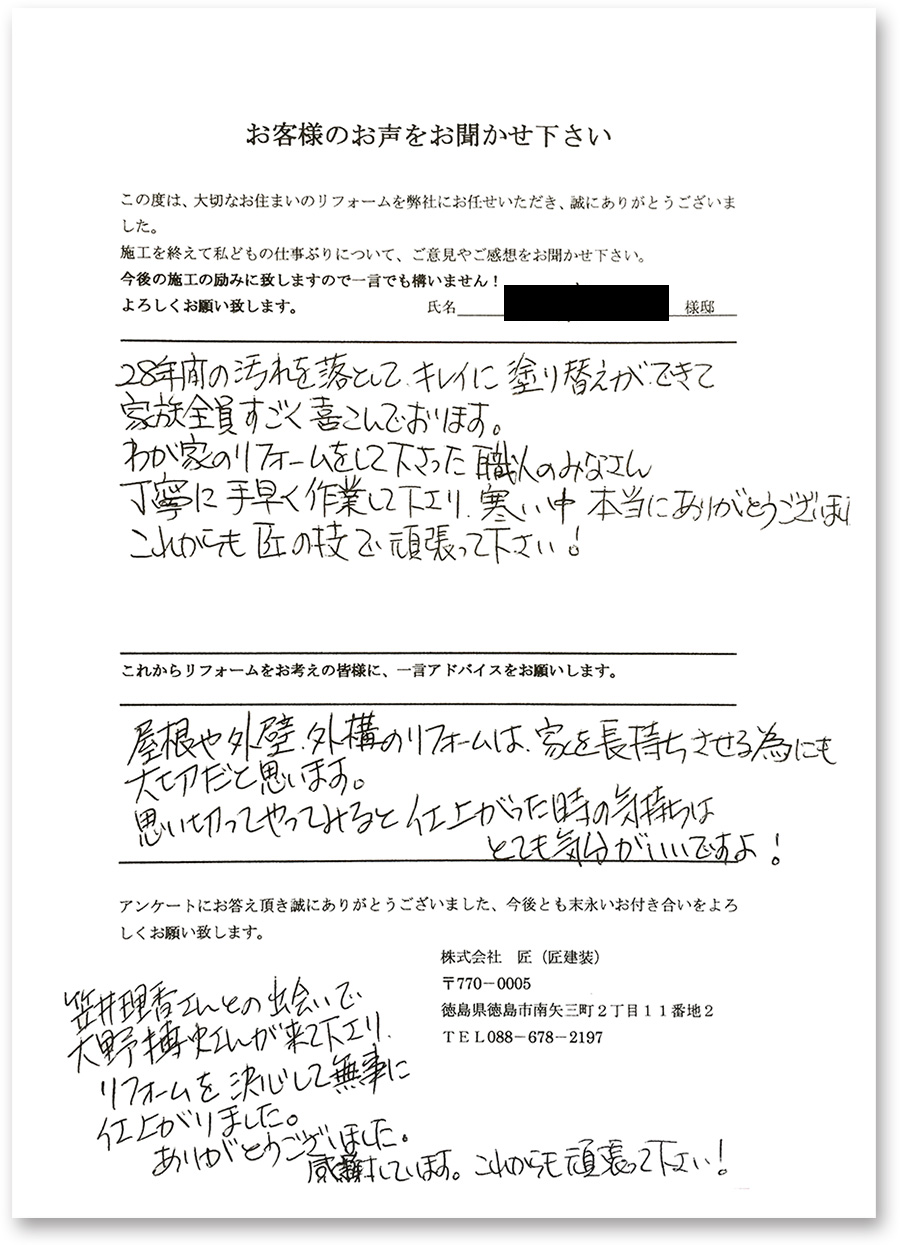 お客様のお声をお聞かせ下さい
この度は、大切なお住まいのリフォームを弊社にお任せいただき、誠にありがとうございま
した。
施工を終えて私どもの仕事ぶりについて、ご意見やご感想をお聞かせ下さい。
今後の施工の励みに致しますので一言でも構いません！
よろしくお願い致します。 氏名 様邸
28年間の汚れを落として、キレイに塗り替えができて
家族全員すごく喜こんでおります。
わが家のリフォームをして下さった職人のみなさん
丁寧に手早く作業して下さり、寒い中本当にありがとうございまし
これからも匠の技で頑張って下さい！
これからリフォームをお考えの皆様に、一言アドバイスをお願いします。
屋根や外壁、外構のリフォームは、家を長持ちさせる為にも
大切だと思います。
思い切ってやってみると仕上がった時の気持ちは
とても気分がいいですよ！
アンケートにお答え頂き誠にありがとうございました、今後とも末永いお付き合いをよろ
しくお願い致します。
株式会社　匠（匠建装）
〒770－0005
徳島県徳島市南矢三町２丁目１１番地２
ＴＥＬ088－678－2197
笠井理香さんとの出会いで
大野博史さんが来て下さり、
リフォームを決心して無事に
仕上がりました。
ありがとうございました。
感謝しています。これからも頑張って下さい！